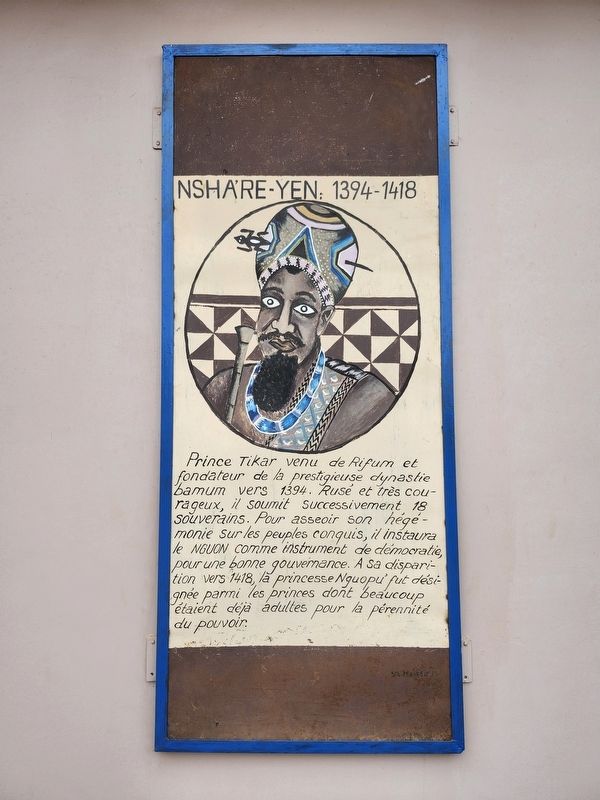 NSHA'RE-YEN: 1394-1418
Prince Tikar venu de Rifum et
fondateur de la prestigieuse dynastie
bamum vers 1394. Rusé et très cou-
rageux, il soumit successivement 18
souverains. Pour asseoir son hégé-
monie sur les peuples conquis, il instaura
le NGUON comme instrument de démocratie,
pour une bonne gouvernance. A sa dispari-
tion vers 1418, la princesse Nguopu' fut dési-
gnée parmi les princes dont beaucoup
étaient déjà adultes pour la pérennité
du pouvoir.